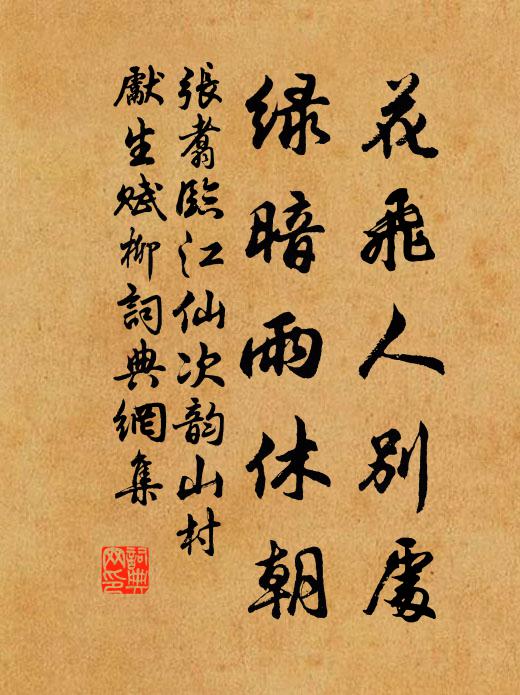 花飛人別處
緑暗雨休朝
張翥臨江仙次韵山村
獻生賦柳詞典網集
詞典网印